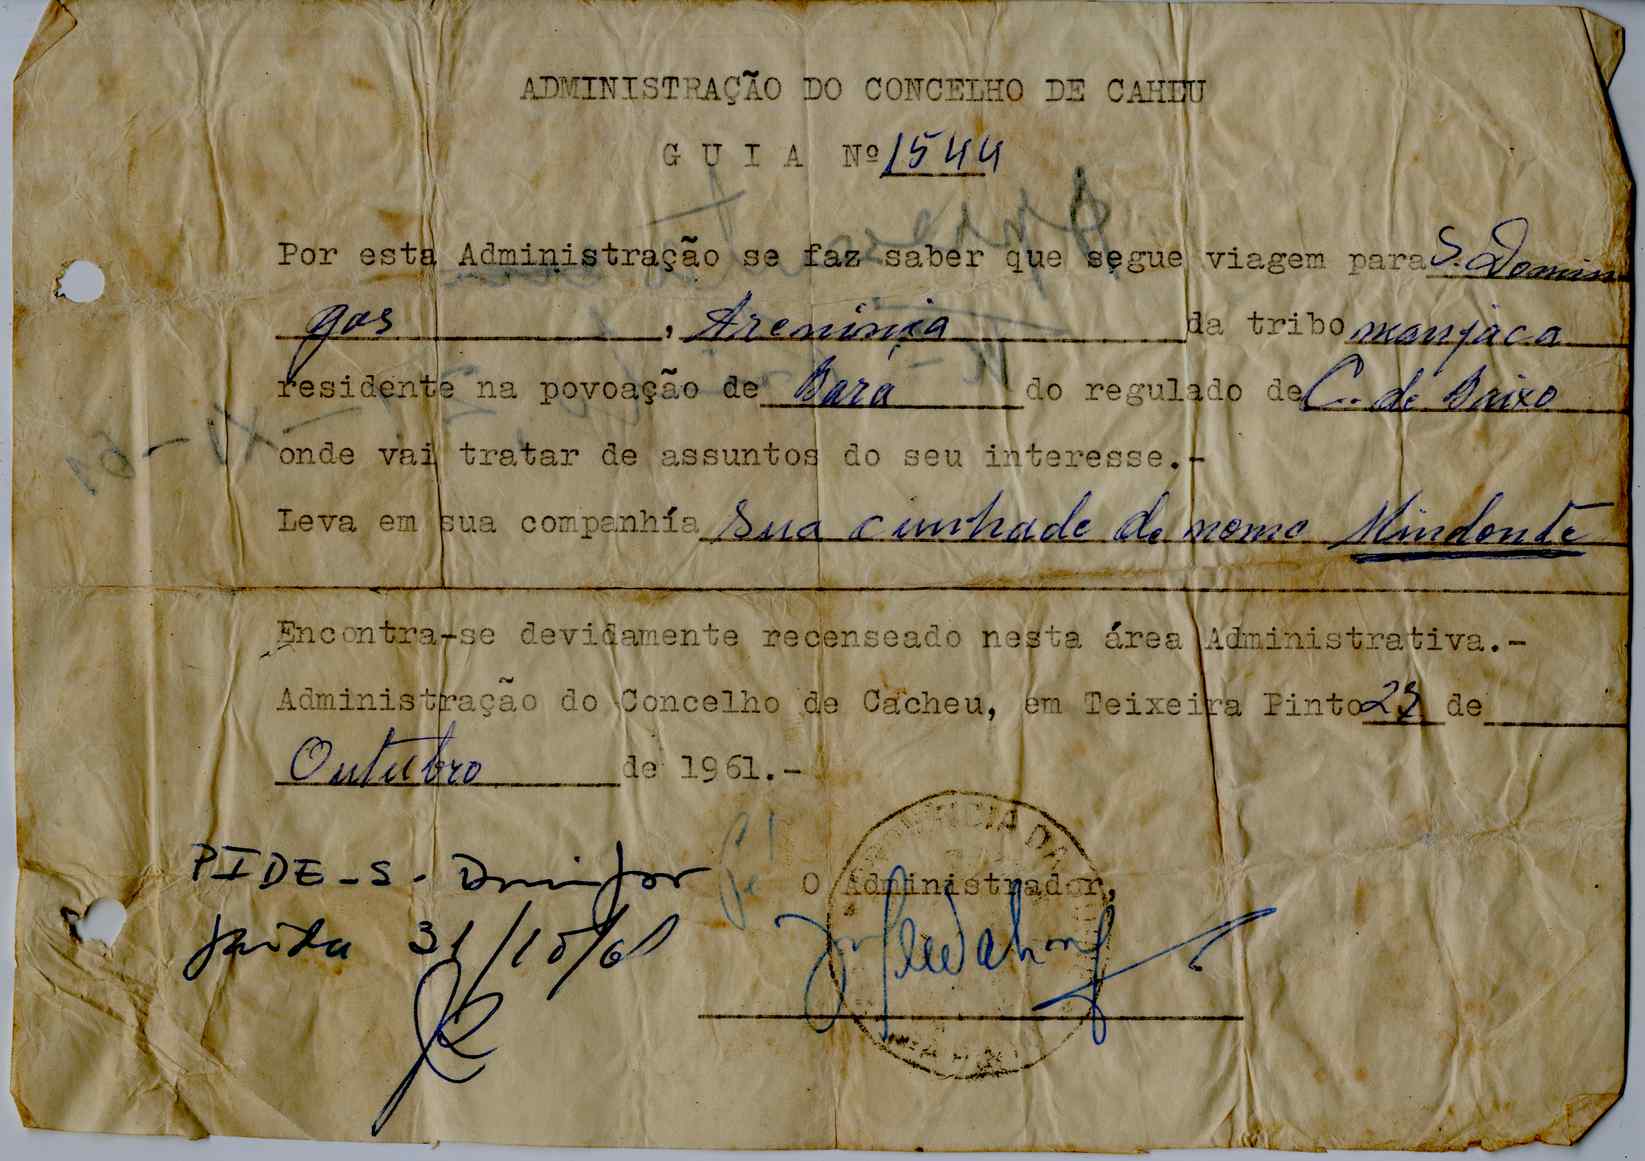 ADMINISTRAÇÃO DO CONCELHO DE CAHEU
G U I A Nº 1544
Por esta Administração se faz saber que segue viagem para S. Domin
gos , da tribo manjaca
residente na povoação de Bara do regulado de C. de Baixo
onde vai tratar de assuntos do seu interesse.-
Leva em sua companhía sua cunhada de nome Mindonte
Encontra-se devidamente recenseado nesta área Administrativa.-
Administração do Concelho de Cacheu, em Teixeira Pinto de
Outubro de 1961.-
PIDE - S.
O Administrador,
Saída 31/10/61